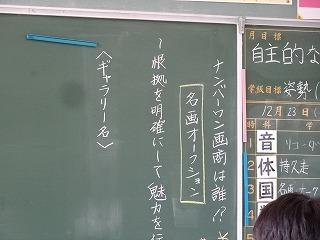 ナンバーワン画商は誰!?
名画オークション
～根拠を明確にして魅力を伝
〈ギャラリー名〉
月目標
自主的な
学級目標 姿勢
12月23日(
特 科 学
音 リコーダ
体 持久走
国 名画オーク